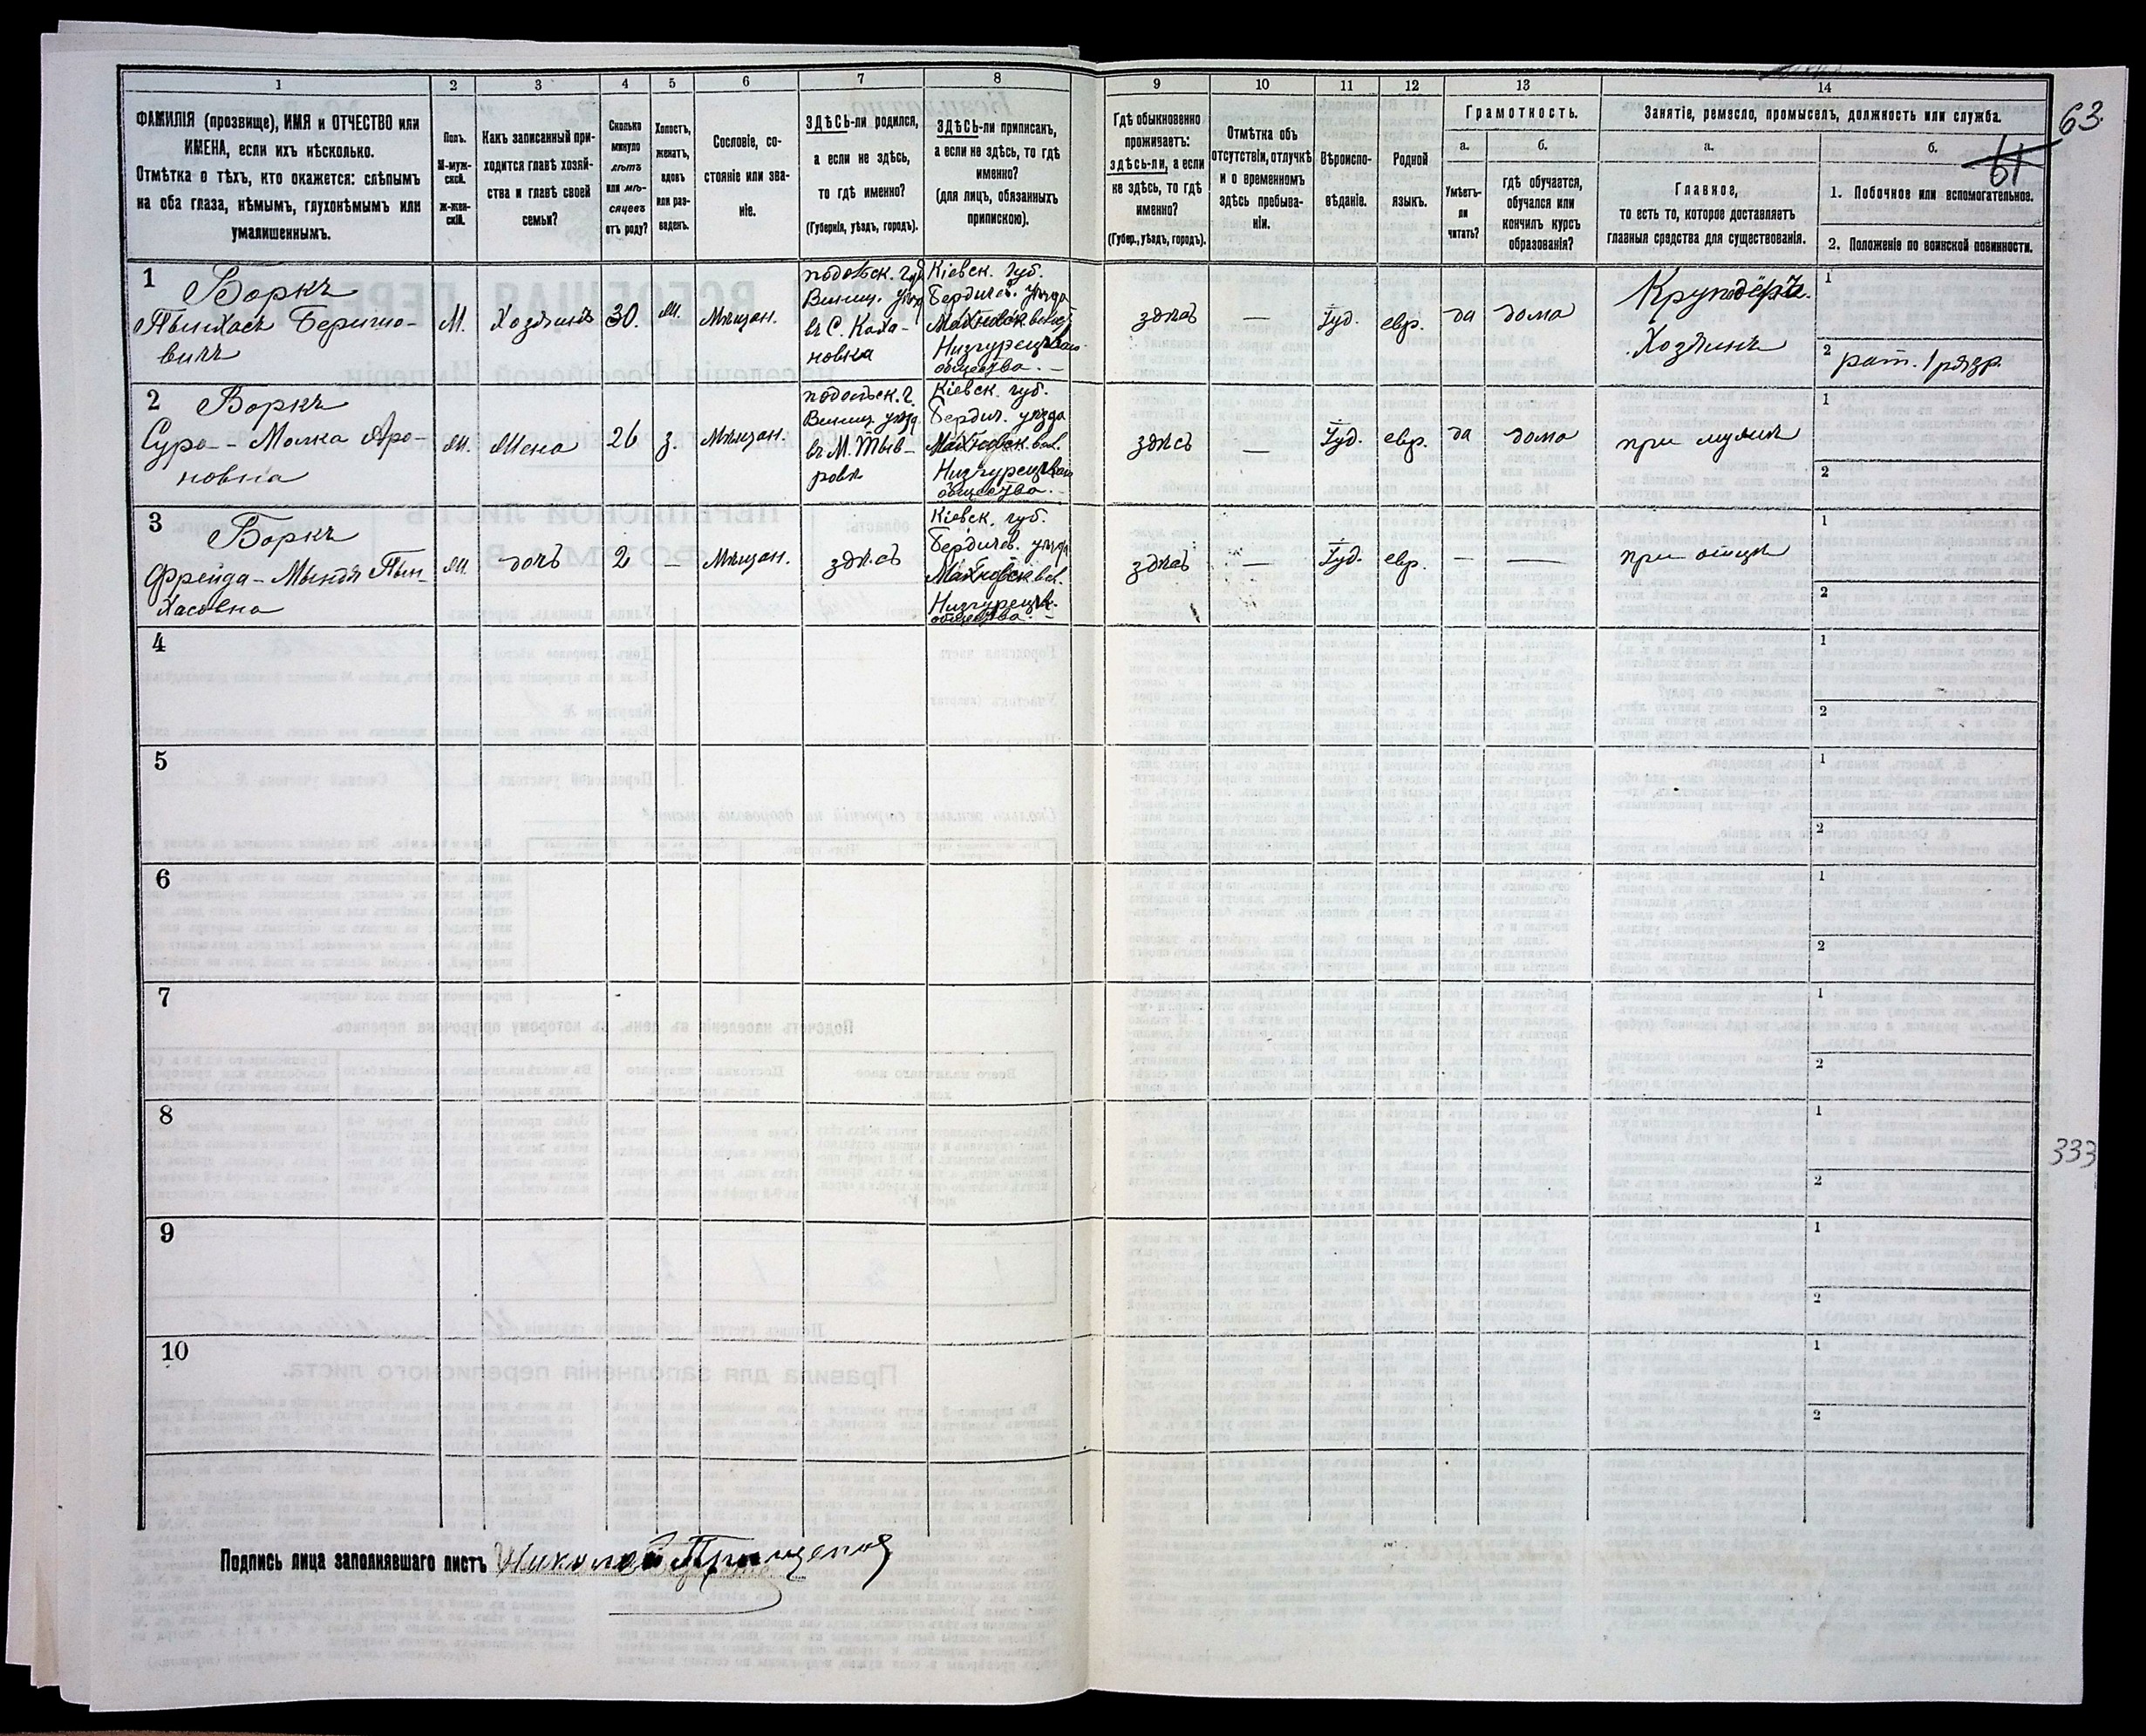 1 2 3 4 5 6 7 8 9 10 11 12 13 14
ФАМИЛІЯ (прозвище), ИМЯ и ОТЧЕСТВО или
ИМЕНА, если ихъ нѣсколько.
Отмѣтка о тѣхъ, кто окажется: слѣпымъ
на оба глаза, нѣмымъ, глухонѣмымъ или
умалишеннымъ.
Полъ.
М-муж-
ской.
Ж-жен-
скій.
Какъ записанный при-
ходится главѣ хозяй-
ства и главѣ своей
семьи?
Сколько
минуло
лѣтъ
или мѣ-
сяцевъ
отъ роду?
Холостъ,
женатъ,
вдовъ
или раз-
веденъ.
Сословіе, со-
стояніе или зва-
ніе.
ЗДѢСЬ-ли родился,
а если не здѣсь,
то гдѣ именно?
(Губернія, уѣздъ, городъ).
ЗДѢСЬ-ли приписанъ,
а если не здѣсь, то гдѣ
именно?
(для лицъ, обязанныхъ
припискою).
Гдѣ обыкновенно
проживаетъ:
здѣсь-ли, а если
не здѣсь, то гдѣ
именно?
(Губер., уѣздъ, городъ).
Отмѣтка объ
отсутствіи, отлучкѣ
и о временномъ
здѣсь пребыва-
ніи.
Вѣроиспо-
вѣданіе.
Родной
языкъ.
Грамотность.
а.
Умѣетъ-
ли
читать?
б.
гдѣ обучается,
обучался или
кончилъ курсъ
образованія?
Занятіе, ремесло, промыселъ, должность или служба.
а.
Главное,
то есть то, которое доставляетъ
главныя средства для существованія.
б.
1. Побочное или вспомогательное.
2. Положеніе по воинской повинности.
63.
61
1
Боркъ
Пынхасъ Берито-
вичъ
М.
Хозяинъ
30.
ж.
Мѣщан.
подольск. губ.
Винниц. уѣзд
въ С. Каха-
новка
Кіевск. губ.
Бердичев. уѣзда
Махновск. волос.
Низгурецкаго
общества. —
здѣсь
—
Іуд.
евр.
да
дома
Хозяинъ
1
2 рат. 1 разр.
2
Боркъ
Сура - Малка Аро-
новна
ж.
Жена
26
з.
Мѣщан.
подольск. г.
Винниц. уѣзд.
въ М. Тыв-
ровѣ
Кіевск. губ.
Бердич. уѣзда
Махновск. вол.
Низгурецкаго
общества. —
здѣсь
—
Іуд.
евр.
да
дома
при мужѣ
1
2
3
Боркъ
Фрейда - Мындя Пын-
хасовна
ж.
дочь
2
—
Мѣщан.
здѣсь
Кіевск. губ.
Бердичев. уѣзда
Махновск. вол.
Низгурецк.
общества. —
здѣсь
—
Іуд.
евр.
—
—
при отцѣ
1
2
4
1
2
5
1
2
6
1
2
7
1
2
8
1
2
333
9
1
2
10
1
2
Подпись лица заполнявшаго листъ Николай